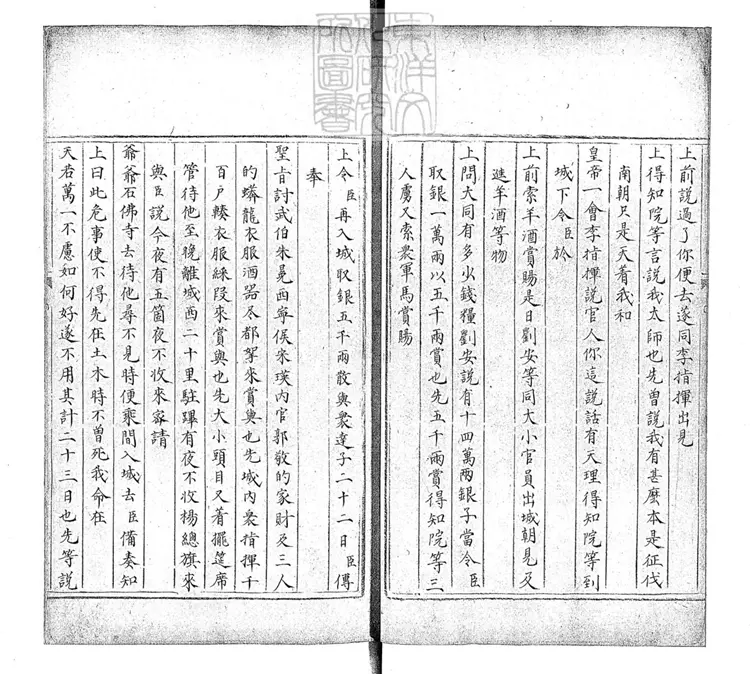 上前說過了你便去遂同李指揮出見
上得知院等言說我太師也先曾說我有甚麽本是征伐
南朝只是天着我和
皇帝一會李指揮說官人你這說話有天理得知院等到
城下令臣於
上前索羊酒賞賜是日劉安等同大小官員出城朝見及
進羊酒等物
上問大同有多少錢糧劉安說有十四萬兩銀子當令臣
取銀一萬兩以五千兩賞也先五千兩賞得知院等三
人虜又索衆軍馬賞賜
上令臣再入城取銀五千兩散與衆達子二十二日臣傳
奉
聖旨討武伯朱冕西寧侯宋瑛內官郭敬的家財及三人
的蟒龍衣服酒器尽都拏來賞與也先城內衆指揮千
百戶輳衣服綵段來賞與也先大小頭目又着擺筵席
管待他至晚離城西二十里駐蹕有夜不收楊總旗來
與臣說今夜有五箇夜不收來密請
爺爺石佛寺去待他尋不見時便乘間入城去臣備奏知
上曰此危事使不得先在土木時不曾死我命在
天若萬一不慮如何好遂不用其計二十三日也先等說
東洋文
化研究
所圖書